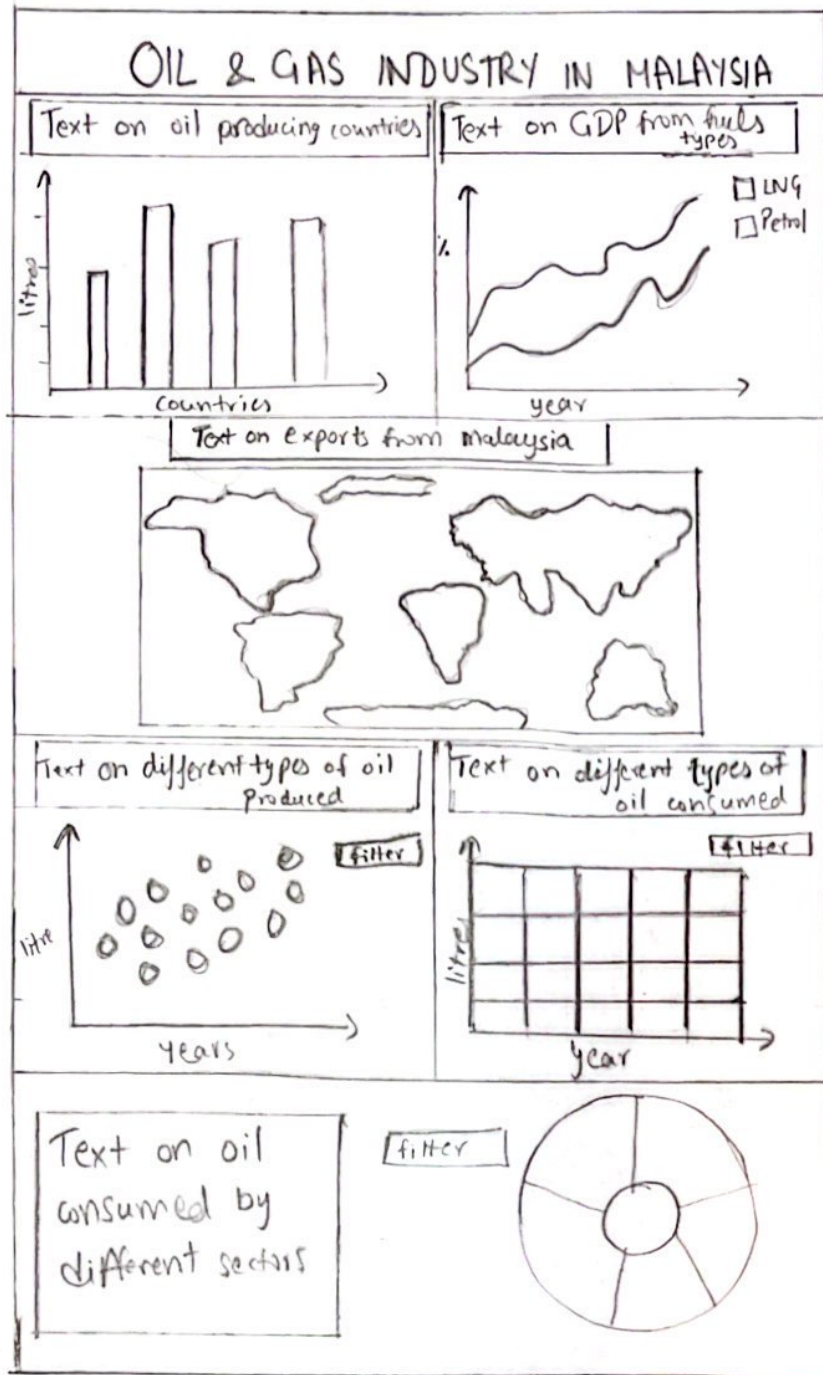 OIL & GAS INDUSTRY IN MALAYSIA
Text on oil producing countries
litres
countries
Text on GDP from fuels
types
%
LNG
Petrol
year
Text on exports from malaysia
Text on different types of oil
produced
filter
litre
years
Text on different types of
oil consumed
filter
litres
year
Text on oil
consumed by
different sectors
filter